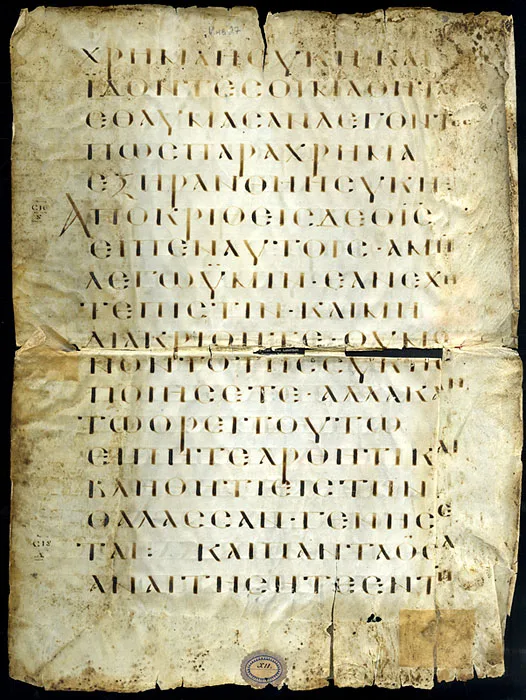 ΧΡΗΜΑΗСΥΚΗ·ΚΑΙ
ΪΔΟΝΤΕСΟΙΜΑΘΗΤΑΙ
ΕΘΑΥΜΑСΑΝΛΕΓΟΝΤΕС
ΠΩСΠΑΡΑΧΡΗΜΑ
ΕΞΗΡΑΝΘΗΗСΥΚΗ·
ΑΠΟΚΡΙΘΕΙСΔΕΟΙ̅С̅
ΕΙΠΕΝΑΥΤΟΙС·ΑΜΗΝ
ΛΕΓΩΫΜΙΝ·ΕΑΝΕΧΗ
ΤΕΠΙСΤΙΝ·ΚΑΙΜΗ
ΔΙΑΚΡΙΘΗΤΕ·ΟΥΜΟ
ΝΟΝΤΟΤΗССΥΚΗС
ΠΟΙΗСΕΤΕ·ΑΛΛΑΚΑΝ
ΤΩΟΡΕΙΤΟΥΤΩ
ΕΙΠΗΤΕΑΡΘΗΤΙΚΑΙ
ΒΛΗΘΗΤΙΕΙСΤΗΝ
ΘΑΛΑССΑΝ·ΓΕΝΗСΕ
ΤΑΙ: ΚΑΙΠΑΝΤΑΟСΑ
ΑΝΑΙΤΗСΗΤΕΕΝΤΗ
XII.